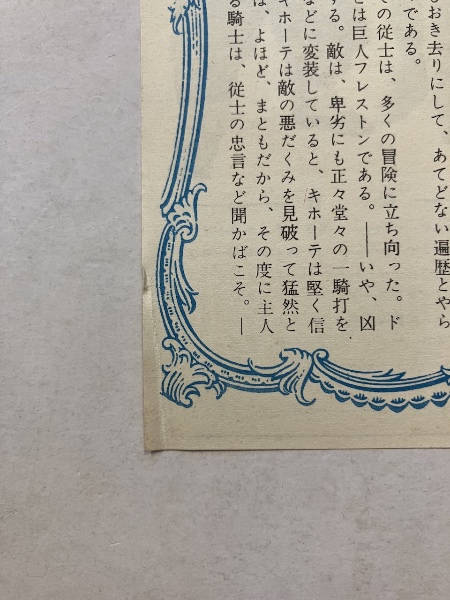 おき去りにして、あてどない遍歴とやら
である。
の従士は、多くの冒険に立ち向った。ド
は巨人フレストンである。――いや、凶
する。敵は、卑劣にも正々堂々の一騎打を
などに変装していると、キホーテは堅く信
キホーテは敵の悪だくみを見破って猛然と
は、よほど、まともだから、その度に主人
る騎士は、従士の忠言など聞かばこそ。―